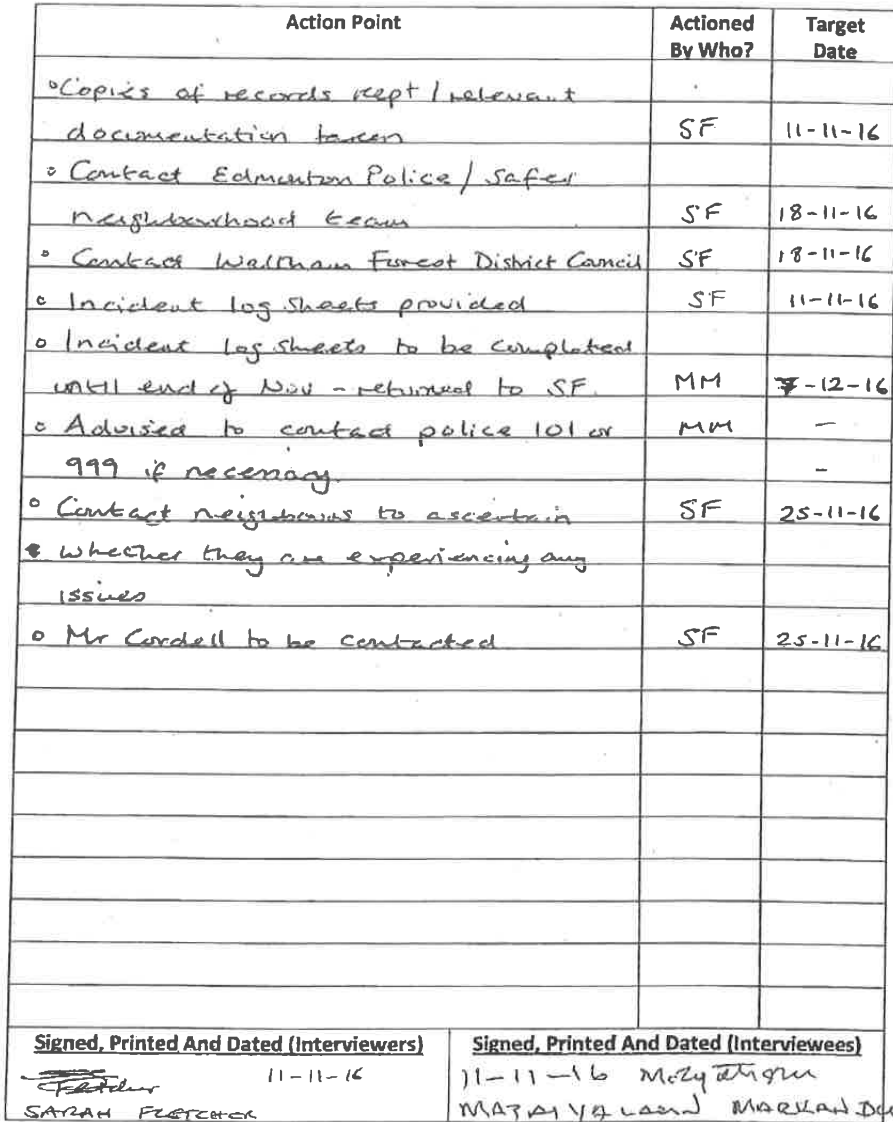 Action Point Actioned By Who? Target Date
°Copies of records kept / relevant
documentation taken SF 11-11-16
° Contact Edmonton Police / Safer
neighbourhood team SF 18-11-16
° Contact Waltham Forest District Council SF 18-11-16
° Incident log sheets provided SF 11-11-16
° Incident log sheets to be completed
until end of Nov - returned to SF. MM 7-12-16
° Advised to contact police 101 or MM –
999 if necessary –
° Contact neighbours to ascertain SF 25-11-16
whether they are experiencing any
issues
° Mr Cordell to be contacted SF 25-11-16
Signed, Printed And Dated (Interviewers) Signed, Printed And Dated (Interviewees)
Fletcher 11-11-16 11-11-16
SARAH FLETCHER